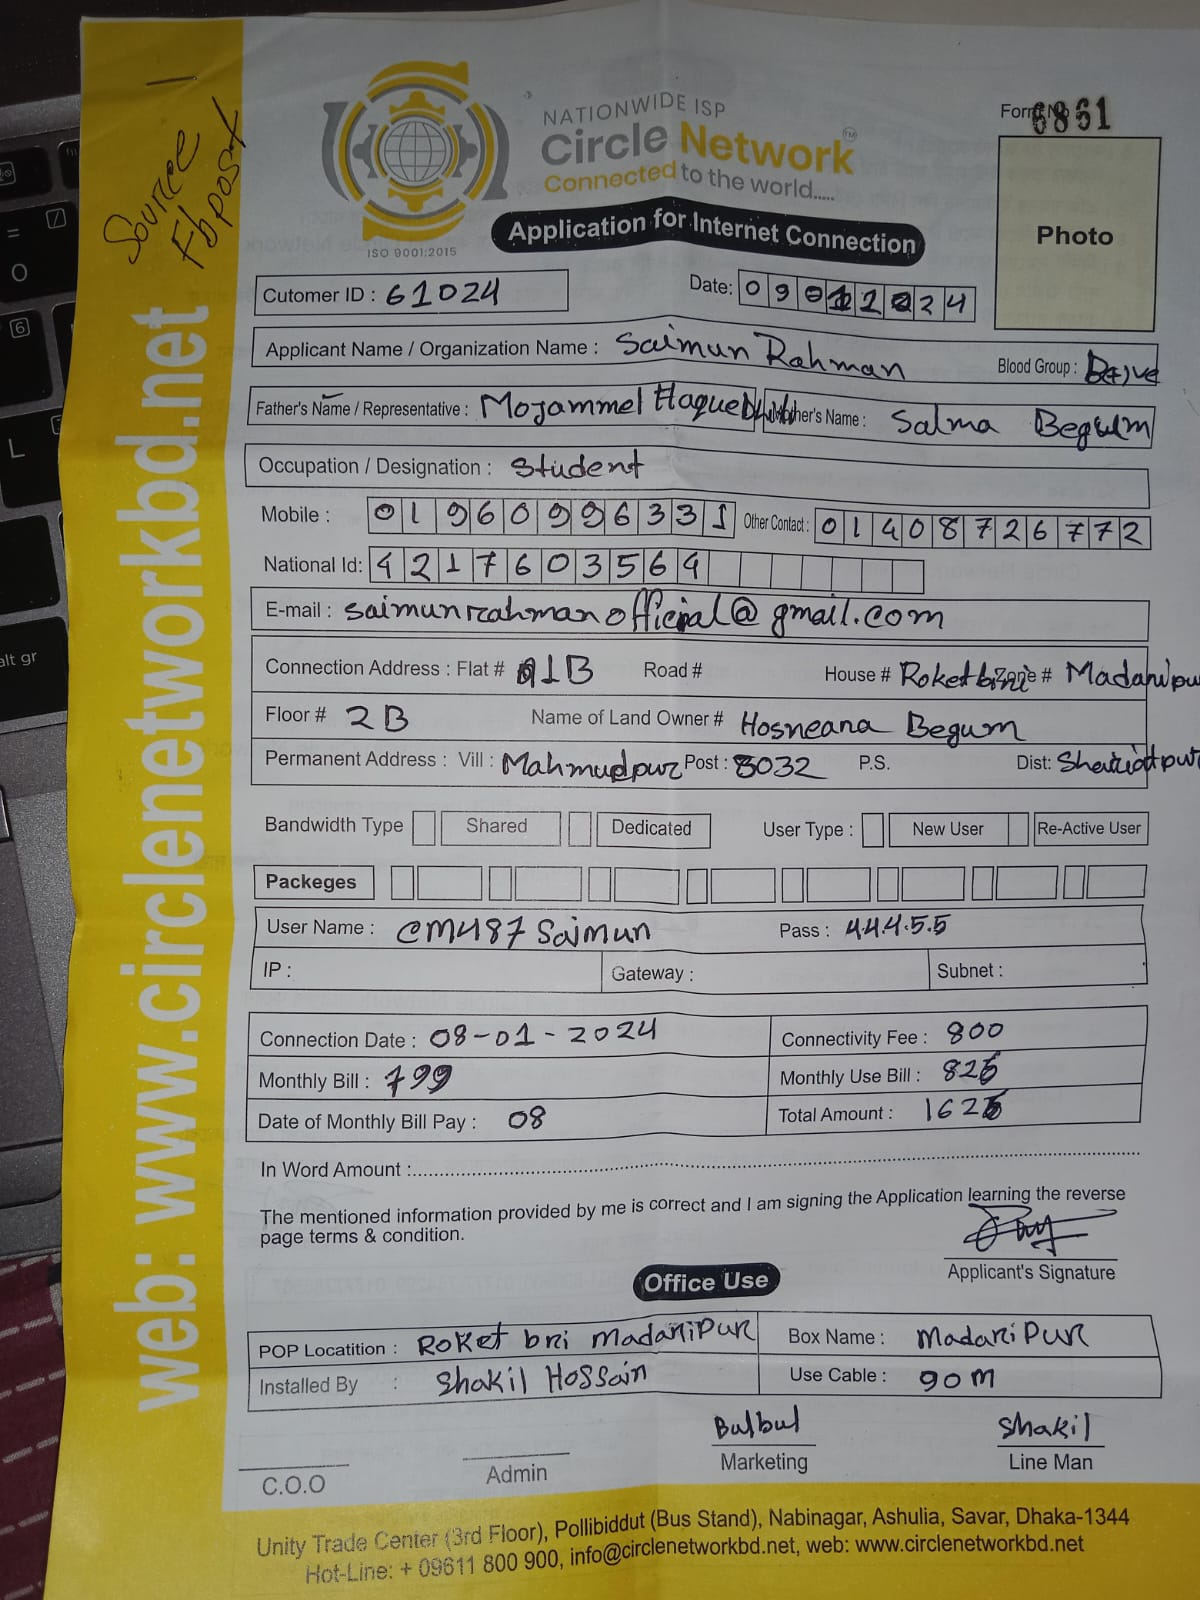 Source
Fb post
NATIONWIDE ISP
Circle Network™
Connected to the world.....
ISO 9001:2015
Application for Internet Connection
Form No 6861
Photo
Cutomer ID : 61024
Date: 09012024
Applicant Name / Organization Name : Saimun Rahman Blood Group : B(+)ve
Father's Name / Representative : Mojammel Haque Mother's Name : Salma Begum
Occupation / Designation : Student
Mobile : 01960996331 Other Contact : 01408726772
National Id: 4217603564
E-mail : saimunrahmanofficial@gmail.com
Connection Address : Flat # 1B Road # House # Roketbiri Zone # Madaripur
Floor # 2B Name of Land Owner # Hosneana Begum
Permanent Address : Vill : Mahmudpur Post : 8032 P.S. Dist: Shariatpur
Bandwidth Type Shared Dedicated User Type : New User Re-Active User
Packeges
User Name : CM487 Saimun Pass : 4.4.4.5.5
IP : Gateway : Subnet :
Connection Date : 08-01-2024 Connectivity Fee : 800
Monthly Bill : 799 Monthly Use Bill : 826
Date of Monthly Bill Pay : 08 Total Amount : 1626
In Word Amount :
The mentioned information provided by me is correct and I am signing the Application learning the reverse
page terms & condition.
Applicant's Signature
Office Use
POP Locatition : Roket bri Madaripur Box Name : Madaripur
Installed By : Shakil Hossain Use Cable : 90M
Bulbul Shakil
C.O.O Admin Marketing Line Man
Unity Trade Center (3rd Floor), Pollibiddut (Bus Stand), Nabinagar, Ashulia, Savar, Dhaka-1344
Hot-Line: + 09611 800 900, info@circlenetworkbd.net, web: www.circlenetworkbd.net
web: www.circlenetworkbd.net